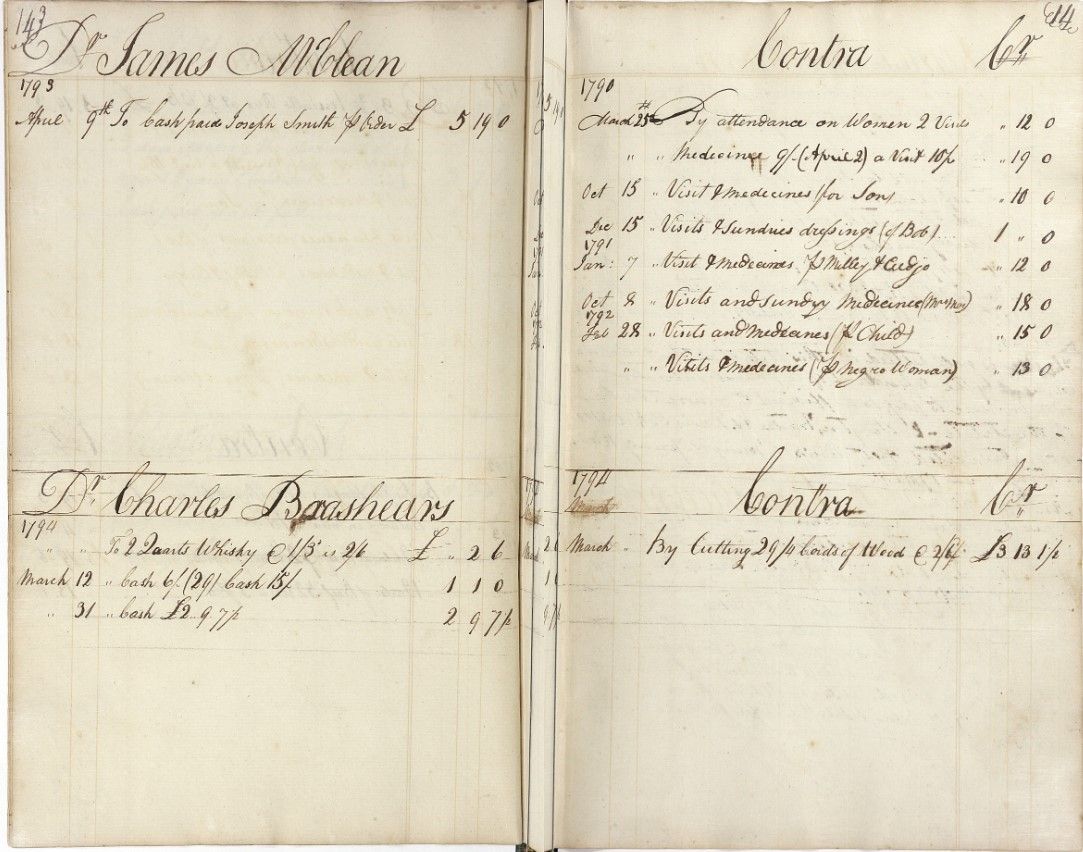 143
Dr James McClean
1793
April 9th To Cash paid Joseph Smith p Order £ 5 19 0
Dr Charles Brashears
1794
" " To 2 Quarts Whisky @ 1/3 is 2/6 £ " 2 6
March 12 " Cash 6/ (29) Cash 15/ 1 1 0
" 31 " Cash £2 9 7½ 2 9 7½
14
Contra Cr
1790
March 25th By attendance on Women 2 Visits " 12 0
" " Medecines 9/ (April 2) a Visit 10/ " 19 0
Oct 15 " Visit & Medecines (for Son) " 10 0
Dec 15 " Visits & Sundries dressings (of Bob) 1 " 0
1791
Jan: 7 " Visit & Medecines p Milley & Cudjo " 12 0
Oct 8 " Visits and Sundry Medecines " 18 0
1792
Feb 28 " Visits and Medecines (p Child) " 15 0
" " Visits & Medecines (p Negro Woman) " 13 0
1794
March
Contra Cr
March " By Cutting 29¼ Cords of Wood @ 2/6 £3 13 1½